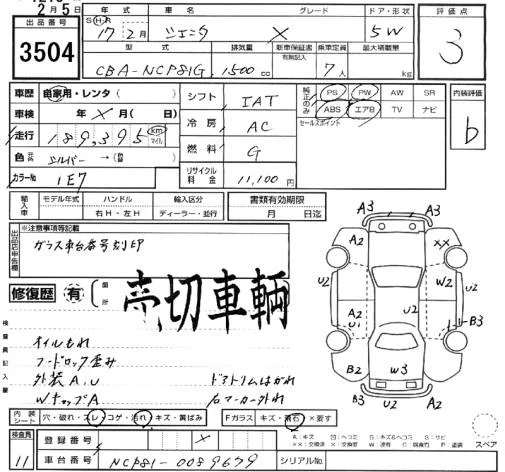 2月5日
年式 車名 グレード ドア・形状 評価点
出品番号 SHR 17年2月 シエンタ × 5W 3
3504 型式 排気量 新車保証書 乗車定員 最大積載量
有無記入
CBA-NCP81G 1500cc 7人 kg
車歴 自家用・レンタ( ) シフト IAT 純正のみ PS PW AW SR 内装評価
車検 年×月( 日) 冷房 AC ABS エアB TV ナビ b
セールスポイント
走行 189,395 km マイル 燃料 G
色 元色 シルバー →(色替 ) リサイクル料金 11,100円
カラーNo 1E7
輸入車 モデル年式 ハンドル 輸入区分 書類有効期限
右H・左H ディーラー・並行 月 日迄
出品店申告欄 ※注意事項等記載
ガラス車台番号刻印
修復歴 有 箇所
売切車輌
検査員記入欄
オイルもれ
フードロック歪み
外装A,U ドアトリムはがれ
WナップA 右マーカー外れ
A3 A3
A2 ××
U2 A2 W2 U2
U2
A2 U1 B3
B2 W3 A2
B3 A3
内装シート 穴・破れ・スレ・コゲ・汚れ・キズ・黄ばみ Fガラス キズ・飛石・×要す
スペア
検査員 11 登録番号 ×
車台番号 NCP81-0089679 シリアルNo.